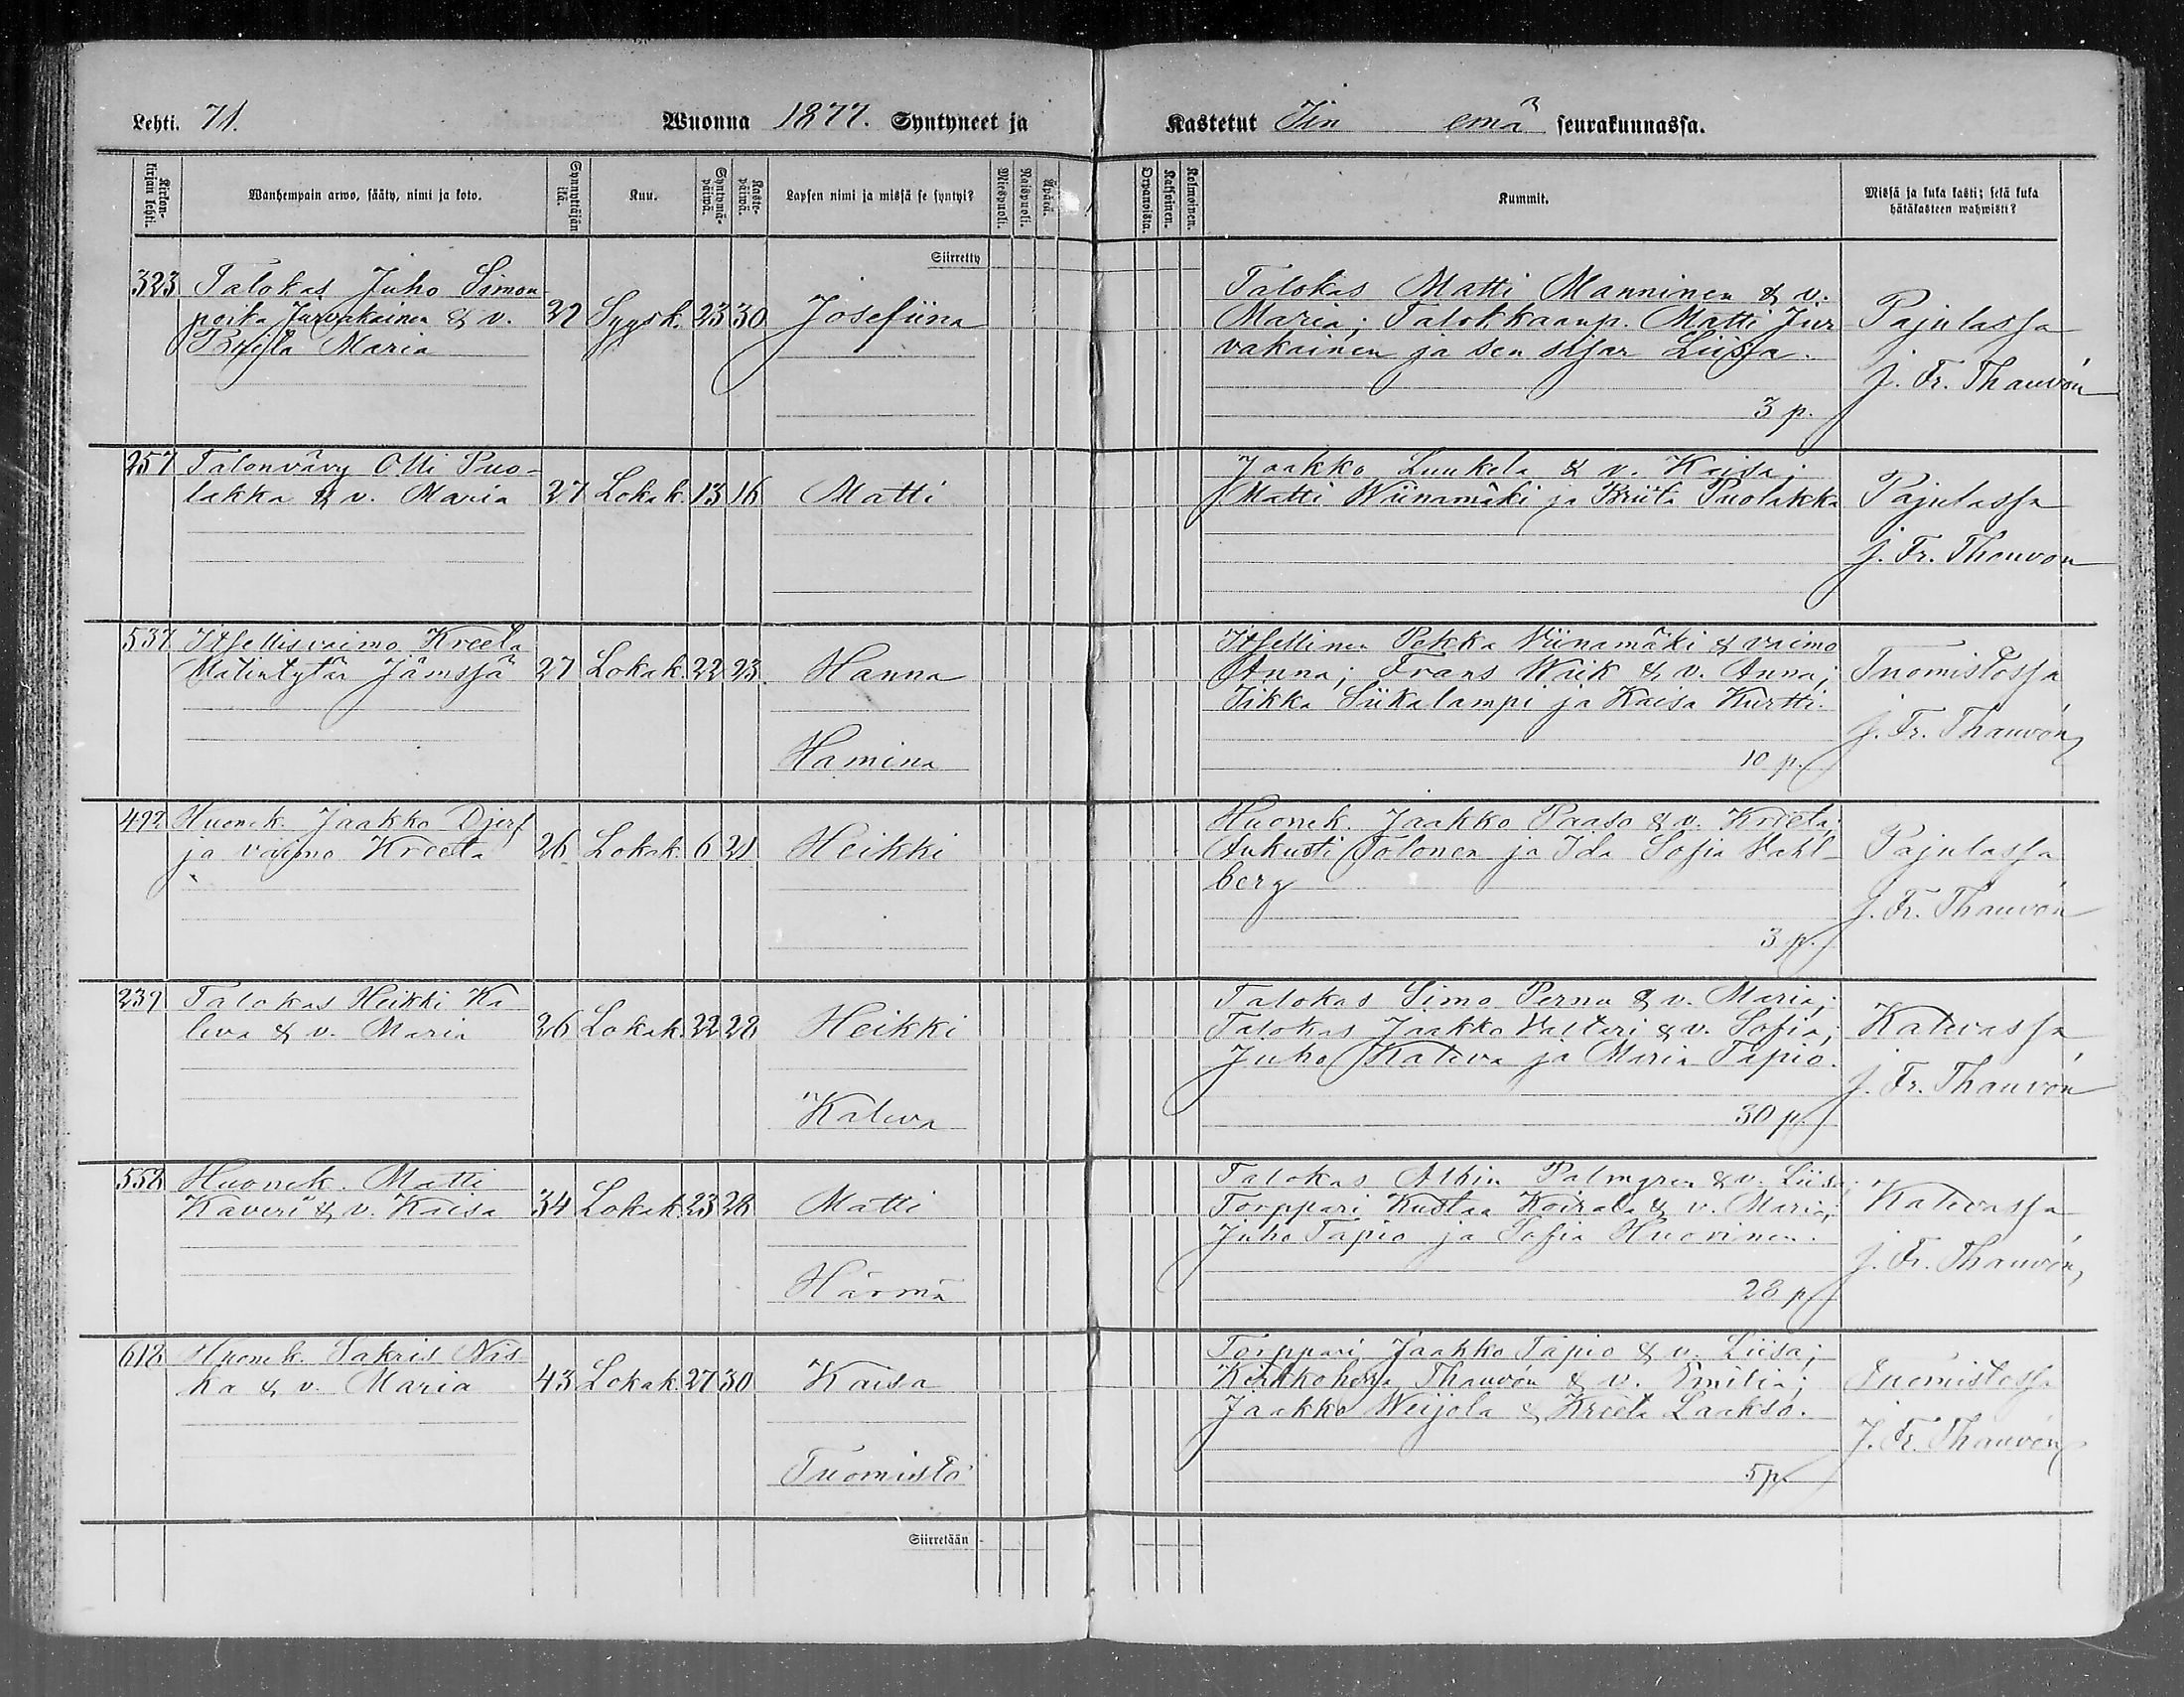 Lehti. 71.
Wuonna 1877. Syntyneet ja
Kastetut Iin emä seurakunnassa.
Kirkonkirjan lehti.
Wanhempain arwo, sääty, nimi ja koto.
Synnyttäjän ikä.
Kuu.
Syntymäpäiwä.
Kastepäiwä.
Lapsen nimi ja missä se syntyi?
Miespuoli.
Waispuoli.
Äpärä.
Orpanoista.
Kaksoinen.
Kolmoinen.
Kummit.
Missä ja kuka kasti; sekä kuka
hätäkasteen wahwisti?
Siirretty
323 Talokas Juho Simon
poika Jurvakainen & v.
Maria
22 Syysk. 23 30 Josefiina
Talokas Matti Manninen & v.
Maria; Talokkaanp. Matti Jur
vakainen ja sen sisar Liisa.
3 p.
Pajulassa
J. Fr. Thauvón
257 Talonvävy Olli Puo-
lakka & v. Maria
27 Lokak. 13 16 Matti
Jaakko Luukela & v. Kaisa;
Matti Wiinamäki ja Briita Puolakka
Pajulassa
J. Fr. Thauvon
537 Itsellisvaimo Kreeta
Matintytär Jämssä
27 Lokak. 22 23. Hanna
Hamina
Itsellinen Pekka Viinamäki & vaimo
Anna; Frans Wiik & v. Anna;
Iikka Siikalampi ja Kaisa Kurtti.
10 p.
Tuomistossa
J. Fr. Thauvón
492 Huonek. Jaakko Djerf
ja vaimo Kreeta
26 Lokak. 6 21 Heikki
Huonek. Jaakko Paaso & v. Kreeta;
Aukusti Tolonen ja Ida Sofia Vahl-
berg
3 p.
Pajulassa
J. Fr. Thauvón
239 Talokas Heikki Ka
leva & v. Maria
26 Lokak. 22 28 Heikki
Kaleva
Talokas Simo Pernu & v. Maria;
Talokas Jaakko Valtari & v. Sofia;
Juho Kaleva ja Maria Tapio.
30 p.
Kalevassa
J. Fr. Thauvón
558 Huonek. Matti
Kaveri & v. Kaisa
34 Lokak. 23 28 Matti
Härmä
Talokas Albin Palmgren & v. Liisa;
Torppari Kustaa Koirala & v. Maria;
Juho Tapio ja Sofia Huovinen.
28 p
Kalevassa
J. Fr. Thauvón
618 Huonek. Sakris Nis
ka & v. Maria
43 Lokak. 27 30 Kaisa
Tuomisto
Torppari Jaakko Tapio & v. Liisa;
Kirkkoherra Thauvón & v. Emilia;
Jaakko Weijola & Kreeta Laakso.
5 p.
Tuomistossa
J. Fr. Thauvón
Siirretään